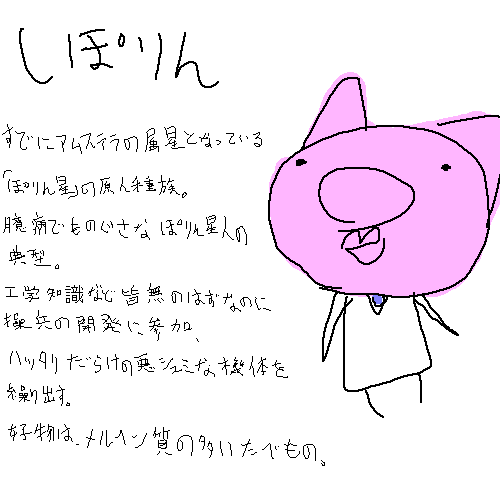 しぽりん
すでにアムステラの属星となっている
「ぽりん星」の原人種族。
臆病でものぐさな ぽりん星人の
典型。
工学知識など皆無のはずなのに
操兵の開発に参加、
ハッタリだらけの悪シュミな機体を
繰り出す。
好物は、メルヘン質の多いたべもの。